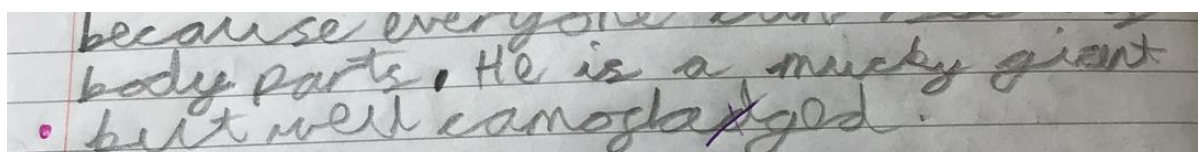 because everyone
body parts. He is a mucky giant
but well camogladged.